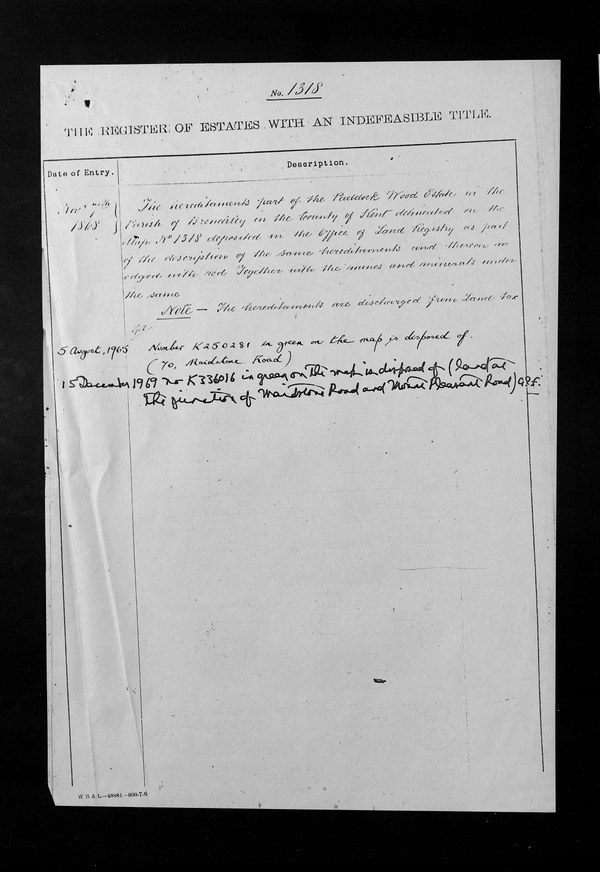 No. 1318
THE REGISTER OF ESTATES WITH AN INDEFEASIBLE TITLE.
Date of Entry.
Description.
1868
The hereditaments part of the Paddock Wood Estate in the
Parish of Brenchley in the County of Kent delineated on the
Map No 1318 deposited in the Office of Land Registry as part
of the description of the same hereditaments and thereon
edged with red Together with the mines and minerals under
the same
Note — The hereditaments are discharged from Land tax
5 August, 1965 Number K250281 in green on the map is disposed of.
(70, Maidstone Road)
15 December 1969 No K336016 in green on the map is disposed of (land at
the junction of Maidstone Road and Mount Pleasant Road)
W B & L—48881—800-7-6